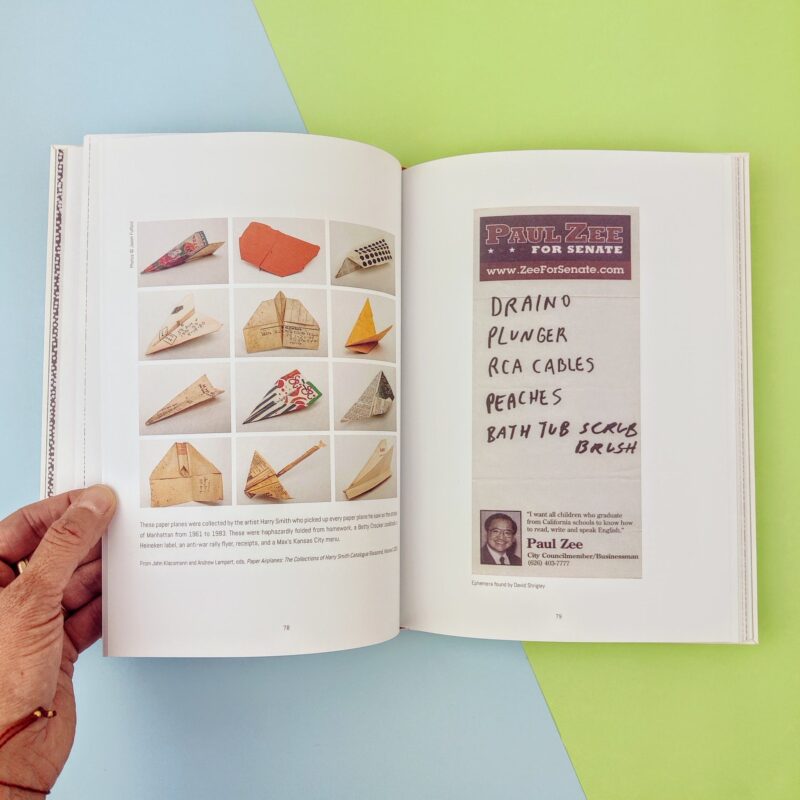 Photos © Jason Fulford
These paper planes were collected by the artist Harry Smith who picked up every paper plane he saw on the streets
of Manhattan from 1961 to 1983. These were haphazardly folded from homework, a Betty Crocker cookbook, a
Heineken label, an anti-war rally flyer, receipts, and a Max's Kansas City menu.
From John Klacsmann and Andrew Lampert, eds, Paper Airplanes: The Collections of Harry Smith Catalogue Raisonné, Volume
78
PAUL ZEE
FOR SENATE
www.ZeeForSenate.com
DRAINO
PLUNGER
RCA CABLES
PEACHES
BATH TUB SCRUB
BRUSH
"I want all children who graduate
from California schools to know how
to read, write and speak English."
Paul Zee
City Councilmember/Businessman
(626) 403-7777
Ephemera found by David Shrigley
79